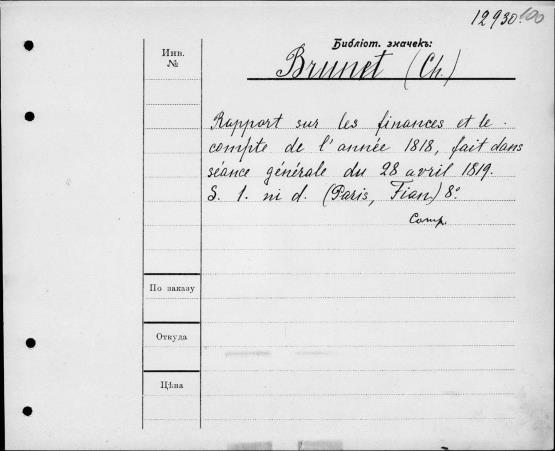 12930. 100
Библіот. значекъ:
Brunet (Ch.)
Инв.
№
Rapport sur les finances et le
compte de l'année 1818, fait dans
séance générale du 28 avril 1819.
S. l. ni d. (Paris, Fian) 8º
Comp.
По заказу
Откуда
Цѣна